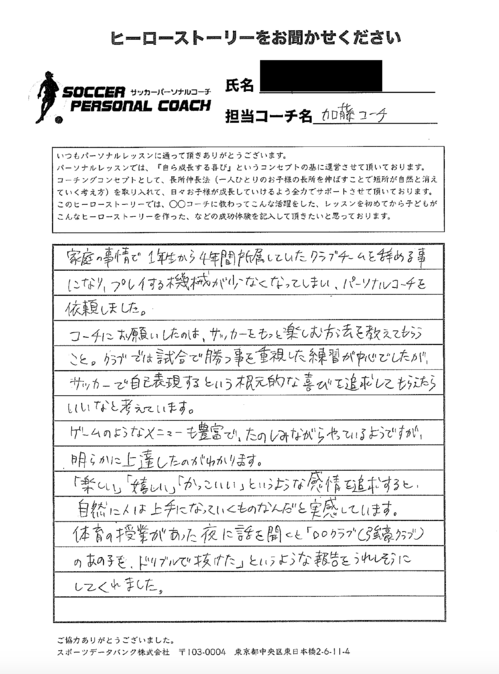 ヒーローストーリーをお聞かせください
SOCCER サッカーパーソナルコーチ
PERSONAL COACH
氏名
担当コーチ名 加藤コーチ
いつもパーソナルレッスンに通って頂きありがとうございます。
パーソナルレッスンでは、『自ら成長する喜び』というコンセプトの基に運営させて頂いております。
コーチングコンセプトとして、長所伸長法（一人ひとりのお子様の長所を伸ばすことで短所が自然と消え
ていく考え方）を取り入れて、日々お子様が成長していけるよう全力でサポートさせて頂いております。
このヒーローストーリーでは、〇〇コーチに教わってこんな活躍をした、レッスンを初めてから子どもが
こんなヒーローストーリーを作った、などの成功体験を記入して頂きたいと思っております。
家庭の事情で 1年生から4年間所属していたクラブチームを辞める事
になり、プレイする機械が少なくなってしまい、パーソナルコーチを
依頼しました。
コーチにお願いしたのは、サッカーをもっと楽しむ方法を教えてもらう
こと。クラブでは試合で勝つ事を重視した練習が中心でしたが、
サッカーで自己表現するという根元的な喜びを追求してもらえたら
いいなと考えています。
ゲームのようなメニューも豊富で、たのしみながらやっているようですが、
明らかに上達したのがわかります。
「楽しい」「嬉しい」「かっこいい」というような感情を追求すると、
自然に人は上手になっていくものなんだと実感しています。
体育の授業があった夜に話を聞くと「〇〇クラブ（強豪クラブ）
のあの子を、ドリブルで抜けた」というような報告をうれしそうに
してくれました。
ご協力ありがとうございました。
スポーツデータバンク株式会社 〒103-0004 東京都中央区東日本橋2-6-11-4